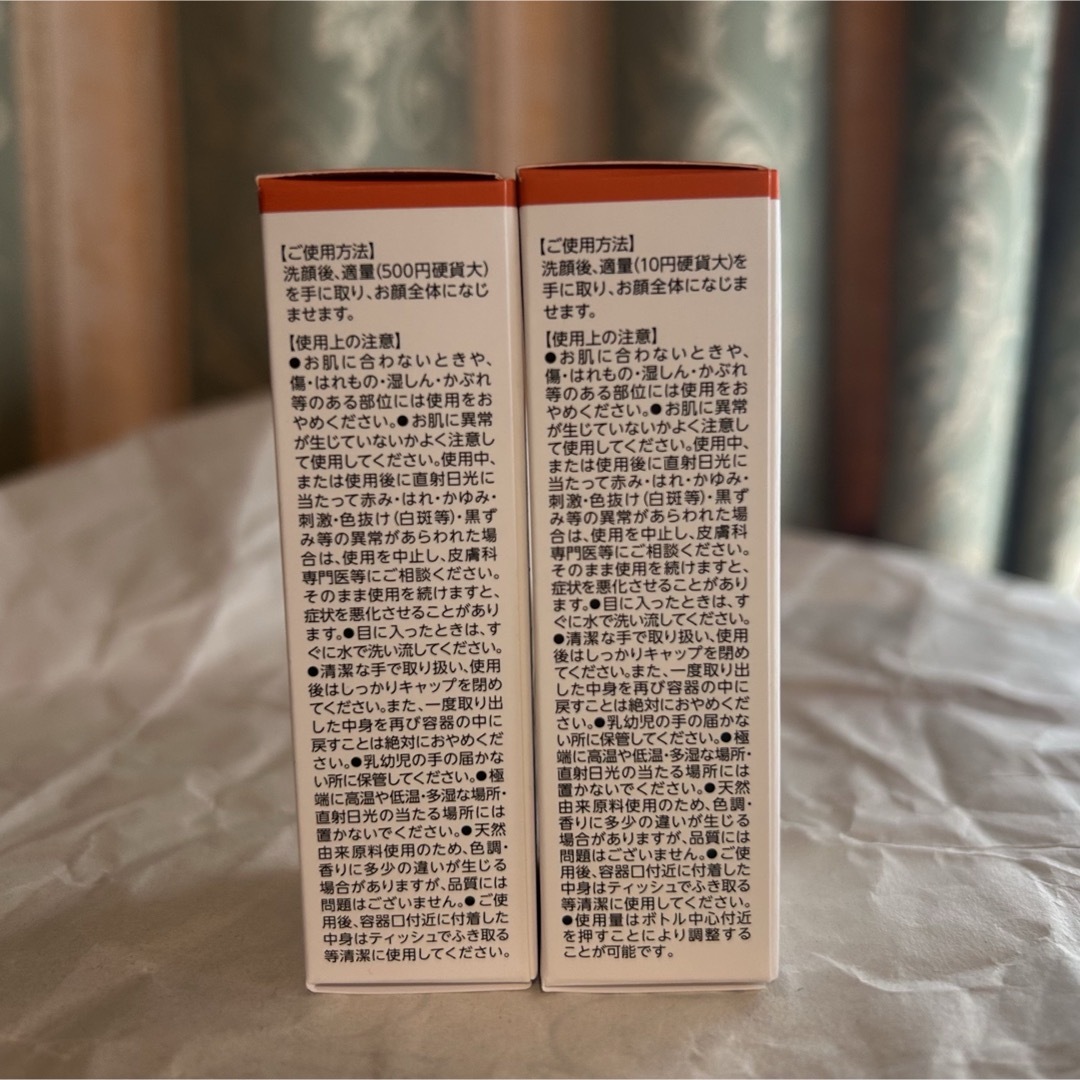 【ご使用方法】
洗顔後、適量(500円硬貨大)
を手に取り、お顔全体になじ
ませます。
【使用上の注意】
●お肌に合わないときや、
傷・はれもの・湿しん・かぶれ
等のある部位には使用をお
やめください。●お肌に異常
が生じていないかよく注意し
て使用してください。使用中、
または使用後に直射日光に
当たって赤み・はれ・かゆみ・
刺激・色抜け(白斑等)・黒ず
み等の異常があらわれた場
合は、使用を中止し、皮膚科
専門医等にご相談ください。
そのまま使用を続けますと、
症状を悪化させることがあり
ます。●目に入ったときは、す
ぐに水で洗い流してください。
●清潔な手で取り扱い、使用
後はしっかりキャップを閉め
てください。また、一度取り出
した中身を再び容器の中に
戻すことは絶対におやめくだ
さい。●乳幼児の手の届かな
い所に保管してください。●極
端に高温や低温・多湿な場所・
直射日光の当たる場所には
置かないでください。●天然
由来原料使用のため、色調・
香りに多少の違いが生じる
場合がありますが、品質には
問題はございません。●ご使
用後、容器口付近に付着した
中身はティッシュでふき取る
等清潔に使用してください。
【ご使用方法】
洗顔後、適量(10円硬貨大)を
手に取り、お顔全体になじま
せます。
【使用上の注意】
●お肌に合わないときや、
傷・はれもの・湿しん・かぶれ
等のある部位には使用をお
やめください。●お肌に異常
が生じていないかよく注意し
て使用してください。使用中、
または使用後に直射日光に
当たって赤み・はれ・かゆみ・
刺激・色抜け(白斑等)・黒ず
み等の異常があらわれた場
合は、使用を中止し、皮膚科
専門医等にご相談ください。
そのまま使用を続けますと、
症状を悪化させることがあり
ます。●目に入ったときは、す
ぐに水で洗い流してください。
●清潔な手で取り扱い、使用
後はしっかりキャップを閉め
てください。また、一度取り出
した中身を再び容器の中に
戻すことは絶対におやめくだ
さい。●乳幼児の手の届かな
い所に保管してください。●極
端に高温や低温・多湿な場所・
直射日光の当たる場所には
置かないでください。●天然
由来原料使用のため、色調・
香りに多少の違いが生じる
場合がありますが、品質には
問題はございません。●ご使
用後、容器口付近に付着した
中身はティッシュでふき取る
等清潔に使用してください。
●使用量はボトル中心付近
を押すことにより調整する
ことが可能です。